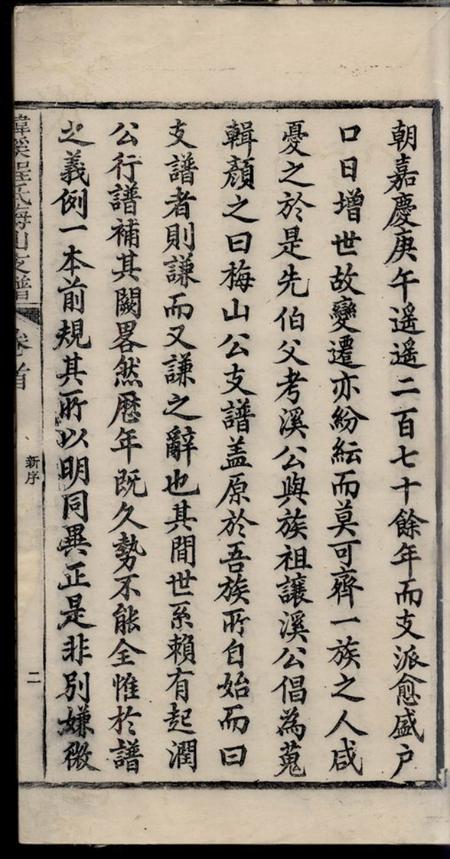 朝嘉慶庚午遥遥二百七十餘年而支派愈盛户
口日增世故變遷亦紛紜而莫可齊一族之人咸
憂之於是先伯父考溪公與族祖讓溪公倡為蒐
輯顏之曰梅山公支譜盖原於吾族所自始而曰
支譜者則謙而又謙之辭也其間世系賴有起潤
公行譜補其闕畧然歴年既久勢不能全惟於譜
之義例一本前規其所以明同異正是非别嫌微
韓溪程氏梅山支譜 卷首
新序
二